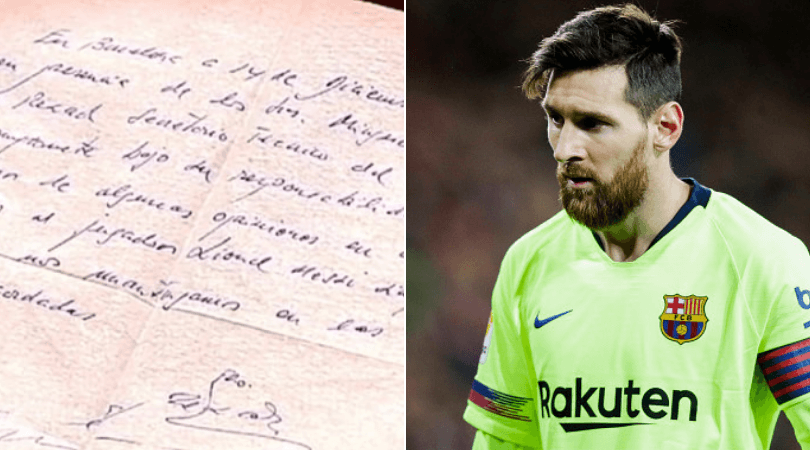 En Barcelona a 14 de Diciem
presencia de los Srs. Mingue
Rexach Secretario Tecnico del
bajo su responsabilid
de algunas opiniones en
al jugador Lionel Messi
nos mantengamos en las
cordadas
FCB
Rakuten